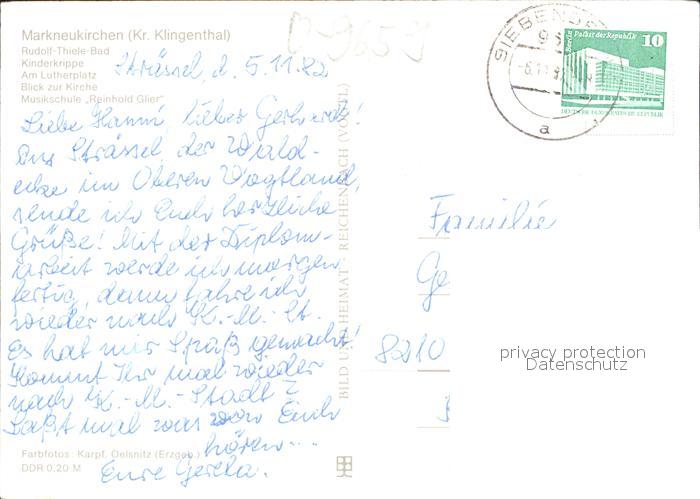 Markneukirchen (Kr. Klingenthal)
Rudolf-Thiele-Bad
Kinderkrippe
Am Lutherplatz
Blick zur Kirche
Musikschule „Reinhold Glier"
Strässel, d. 5.11.82
Liebe Hanni, lieber Gerhard!
Aus Strässel, der Wald-
ecke im Oberen Vogtland,
sende ich Euch herzliche
Grüße! Mit der Diplom-
arbeit werde ich morgen
fertig, dann fahre ich
wieder nach K.-M.-St.
Es hat mir Spaß gemacht!
Kommt Ihr mal wieder
nach K.-M.-Stadt?
Laßt mal was von Euch
hören...
Eure Gerda.
Farbfotos: Karpf, Oelsnitz (Erzgeb.)
DDR 0.20 M
BILD UND HEIMAT REICHENBACH (VOGTL)
Berlin Palast der Republik
10
DEUTSCHE DEMOKRATISCHE REPUBLIK
a
Familie
Ge
8210
privacy protection
Datenschutz